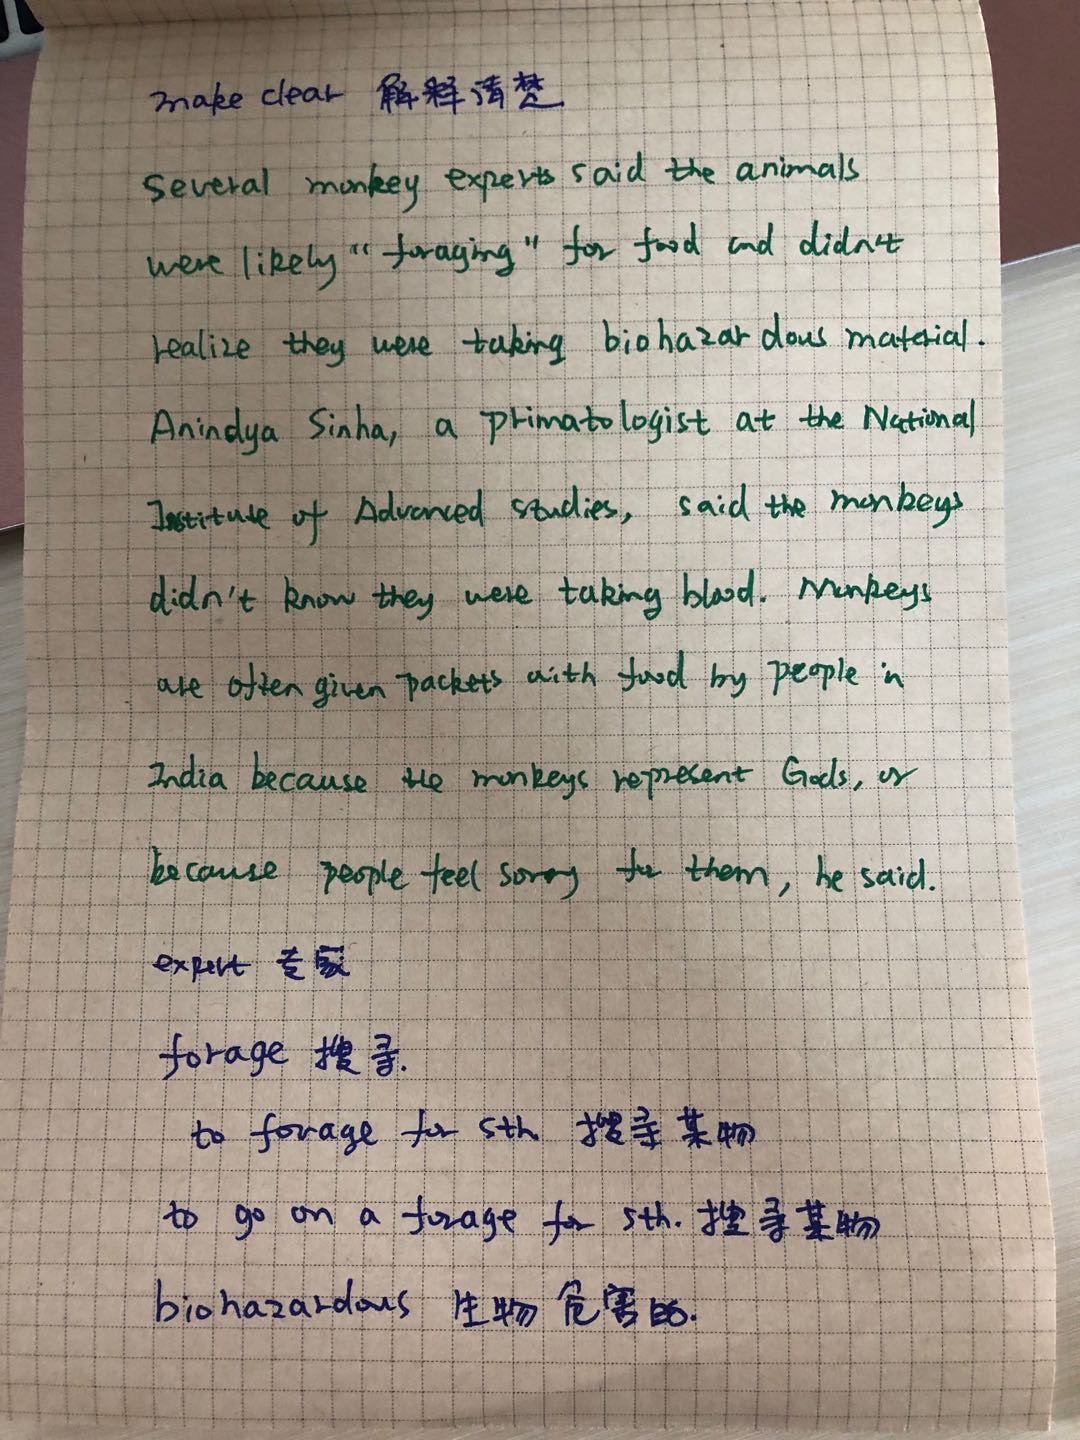 make clear 解释清楚
Several monkey experts said the animals
were likely "foraging" for food and didn't
realize they were taking biohazardous material.
Anindya Sinha, a primatologist at the National
Institute of Advanced studies, said the monkeys
didn't know they were taking blood. Monkeys
are often given packets with food by people in
India because the monkeys represent Gods, or
because people feel sorry for them, he said.
expert 专家
forage 搜寻.
to forage for sth 搜寻某物
to go on a forage for sth. 搜寻某物
biohazardous 生物危害的.